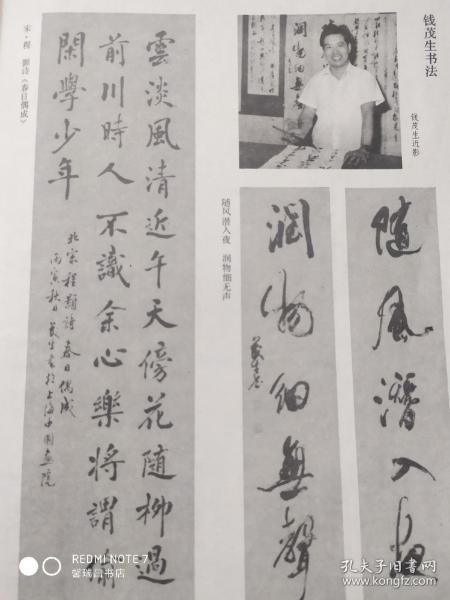 钱茂生书法
钱茂生近影
随风潜入夜
润物细無聲
茂生书
随风潜入夜 润物细无声
雲淡風清近午天傍花随柳過
前川時人不識余心樂將謂偷
閑學少年
北宋程顥詩春日偶成
丙寅秋日茂生书於上海中国画院
宋·程 颢诗《春日偶成》
REDMI NOTE 7
馨瑞阁书店
孔夫子旧书网